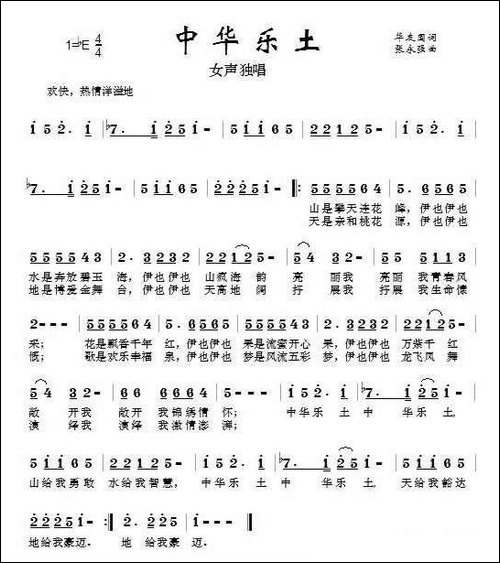 中华乐土
1=♭E 4/4
华友国词
张永强曲
女声独唱
欢快，热情洋溢地
i 5 2· i | ♭7· i 2 5 i - | 5 i i 6 5 | 2 2 1 2 5 - | i 5 2· i |
♭7· i 2 5 i - | 5 i i 6 5 | 2 2 2 5 i - ‖: 5 5 5 5 6 5 | 5· 6 5 6 5 |
山是攀天连花 峰，伊也伊也
天是亲和桃花 源，伊也伊也
5 5 5 5 4 3 | 2· 3 2 3 2 | 2 2 1 2 | 5 4 3 2 | 5 5 1 1 1 |
水是奔放碧玉 海，伊也伊也 山疯海 韵 亮 丽我 亮丽 我青春风
地是博爱金舞 台，伊也伊也 天高地 阔 抒 展我 抒展 我生命情
2 - - - | 5 5 5 5 6 5 | 5· 6 5 6 5 | 5 5 5 5 4 3 | 2· 3 2 3 2 | 2 2 1 2 5 |
采； 花是飘香千年 红，伊也伊也 果是流蜜开心 果，伊也伊也 万紫千 红
慨； 歌是欢乐幸福 泉，伊也伊也 梦是风流五彩 梦，伊也伊也 龙飞凤 舞
5 4 3 2 - | 6 6 2 2 2 | 5 - - - | i 5 2· i | ♭7· i 2 5 i - |
敞 开我 敞开 我锦绣情 怀； 中华乐 土 中 华乐 土，
演 绎我 演绎 我激情澎 湃；
5 i i 6 5 | 2 2 2 2 5 - | i 5 2· i | ♭7· i 2 5 i - | 5 i i 6 5 |
山给我勇敢 水给我智慧， 中华乐 土 中 华乐 土， 天给我豁达
2 2 2 5 i - :‖ 2· 2 2 5 | i - - - ‖
地给我豪迈。 地 给我豪 迈。